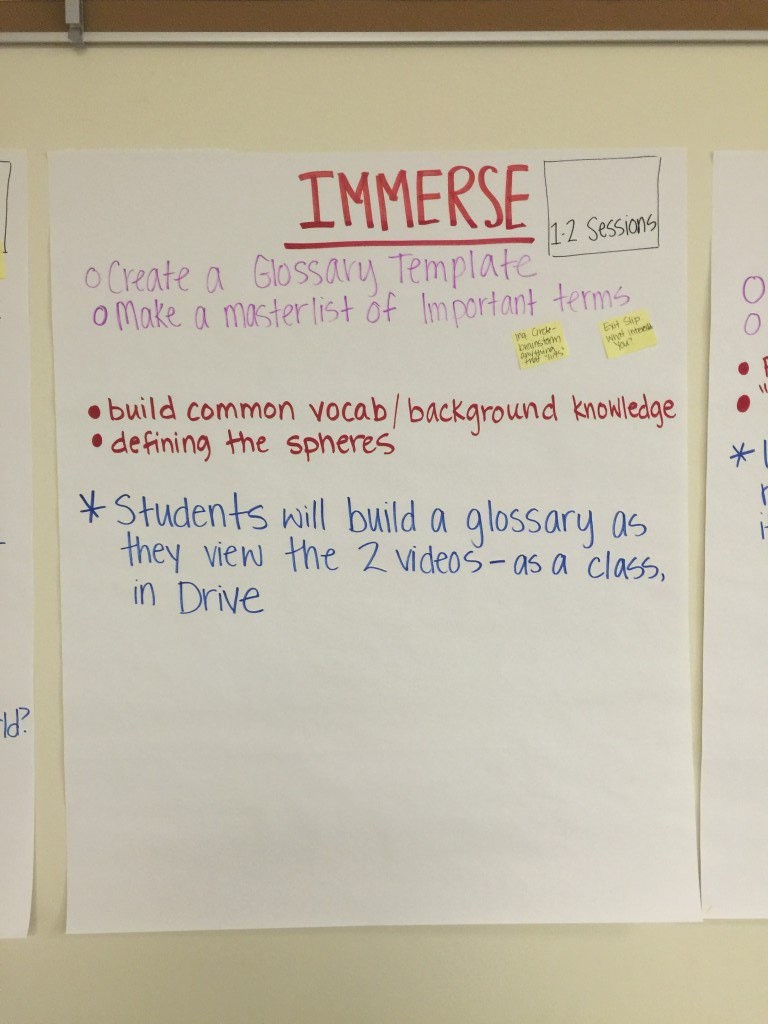 IMMERSE
1-2 Sessions
o Create a Glossary Template
o Make a masterlist of Important terms
Inq Circle-
brainstorm
anything
that "fits"
Exit Slip
what interests
You"
• build common vocab/background knowledge
• defining the spheres
* Students will build a glossary as
they view the 2 videos - as a class,
in Drive
rld?